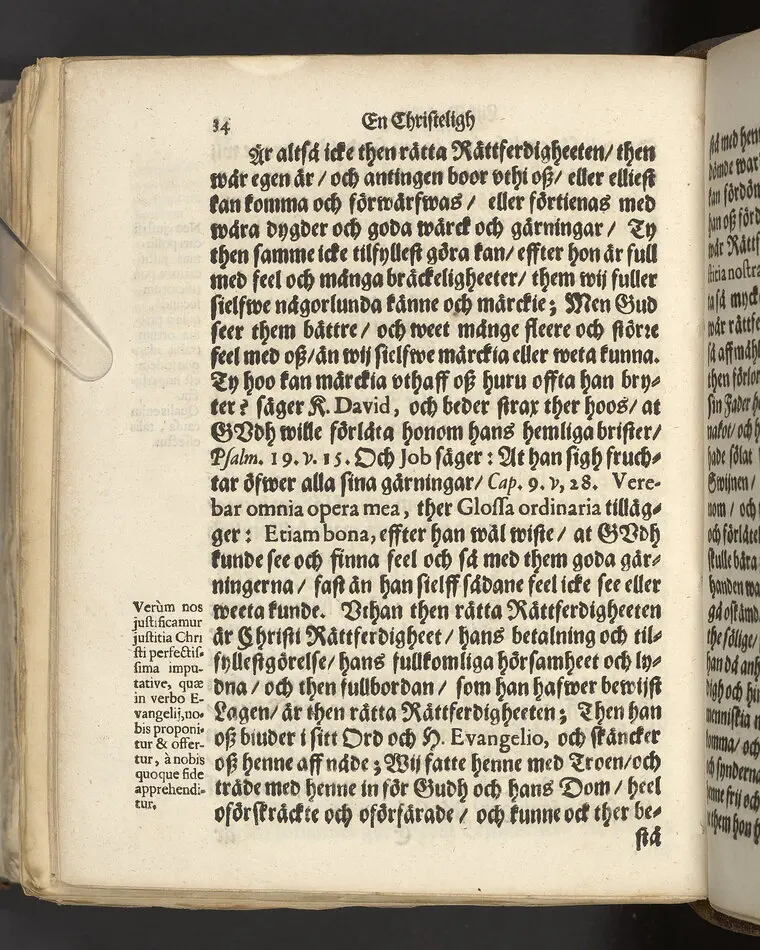 34 En Christeligh
Är altså icke then rätta Rättferdigheeten/ then
wår egen är / och antingen boor vthi oß/ eller elliest
kan komma och förwärfwas / eller förtienas med
wåra dygder och goda wärck och gärningar / Ty
then samme icke tilfyllest göra kan/ effter hon är full
med feel och många bräckeligheeter/ them wij fuller
sielfwe någorlunda känne och märckie; Men Gud
seer them bättre / och weet månge fleere och större
feel med oß/än wij sielfwe märckia eller weta kunna.
Ty hoo kan märckia vthaff oß huru offta han bry-
ter? säger K. David, och beder strax ther hoos/ at
GVdh wille förlåta honom hans hemliga brister/
Psalm. 19. v. 15. Och Job säger: At han sigh fruch-
tar öfwer alla sina gärningar/ Cap. 9. v, 28. Vere-
bar omnia opera mea, ther Glossa ordinaria tilläg-
ger: Etiam bona, effter han wäl wiste/ at GVdh
kunde see och finna feel och så med them goda gär-
ningerna / fast än han sielff sådane feel icke see eller
weeta kunde. Vthan then rätta Rättferdigheeten
är Christi Rättferdigheet/ hans betalning och til-
fyllestgörelse/ hans fullkomliga hörsamheet och ly-
dna / och then fullbordan / som han hafwer bewijst
Lagen/ är then rätta Rättferdigheeten; Then han
oß biuder i sitt Ord och H. Evangelio, och skäncker
oß henne aff nåde; Wij fatte henne med Troen/och
träde med henne in för Gudh och hans Dom / heel
oförskräckte och oförfärade / och kunne ock ther be-
stå
Verùm nos
justificamur
justitia Chri
sti perfectis-
sima impu-
tative, quæ
in verbo E-
vangelij,no-
bis proponi-
tur & offer-
tur, à nobis
quoque fide
apprehendi-
tur.